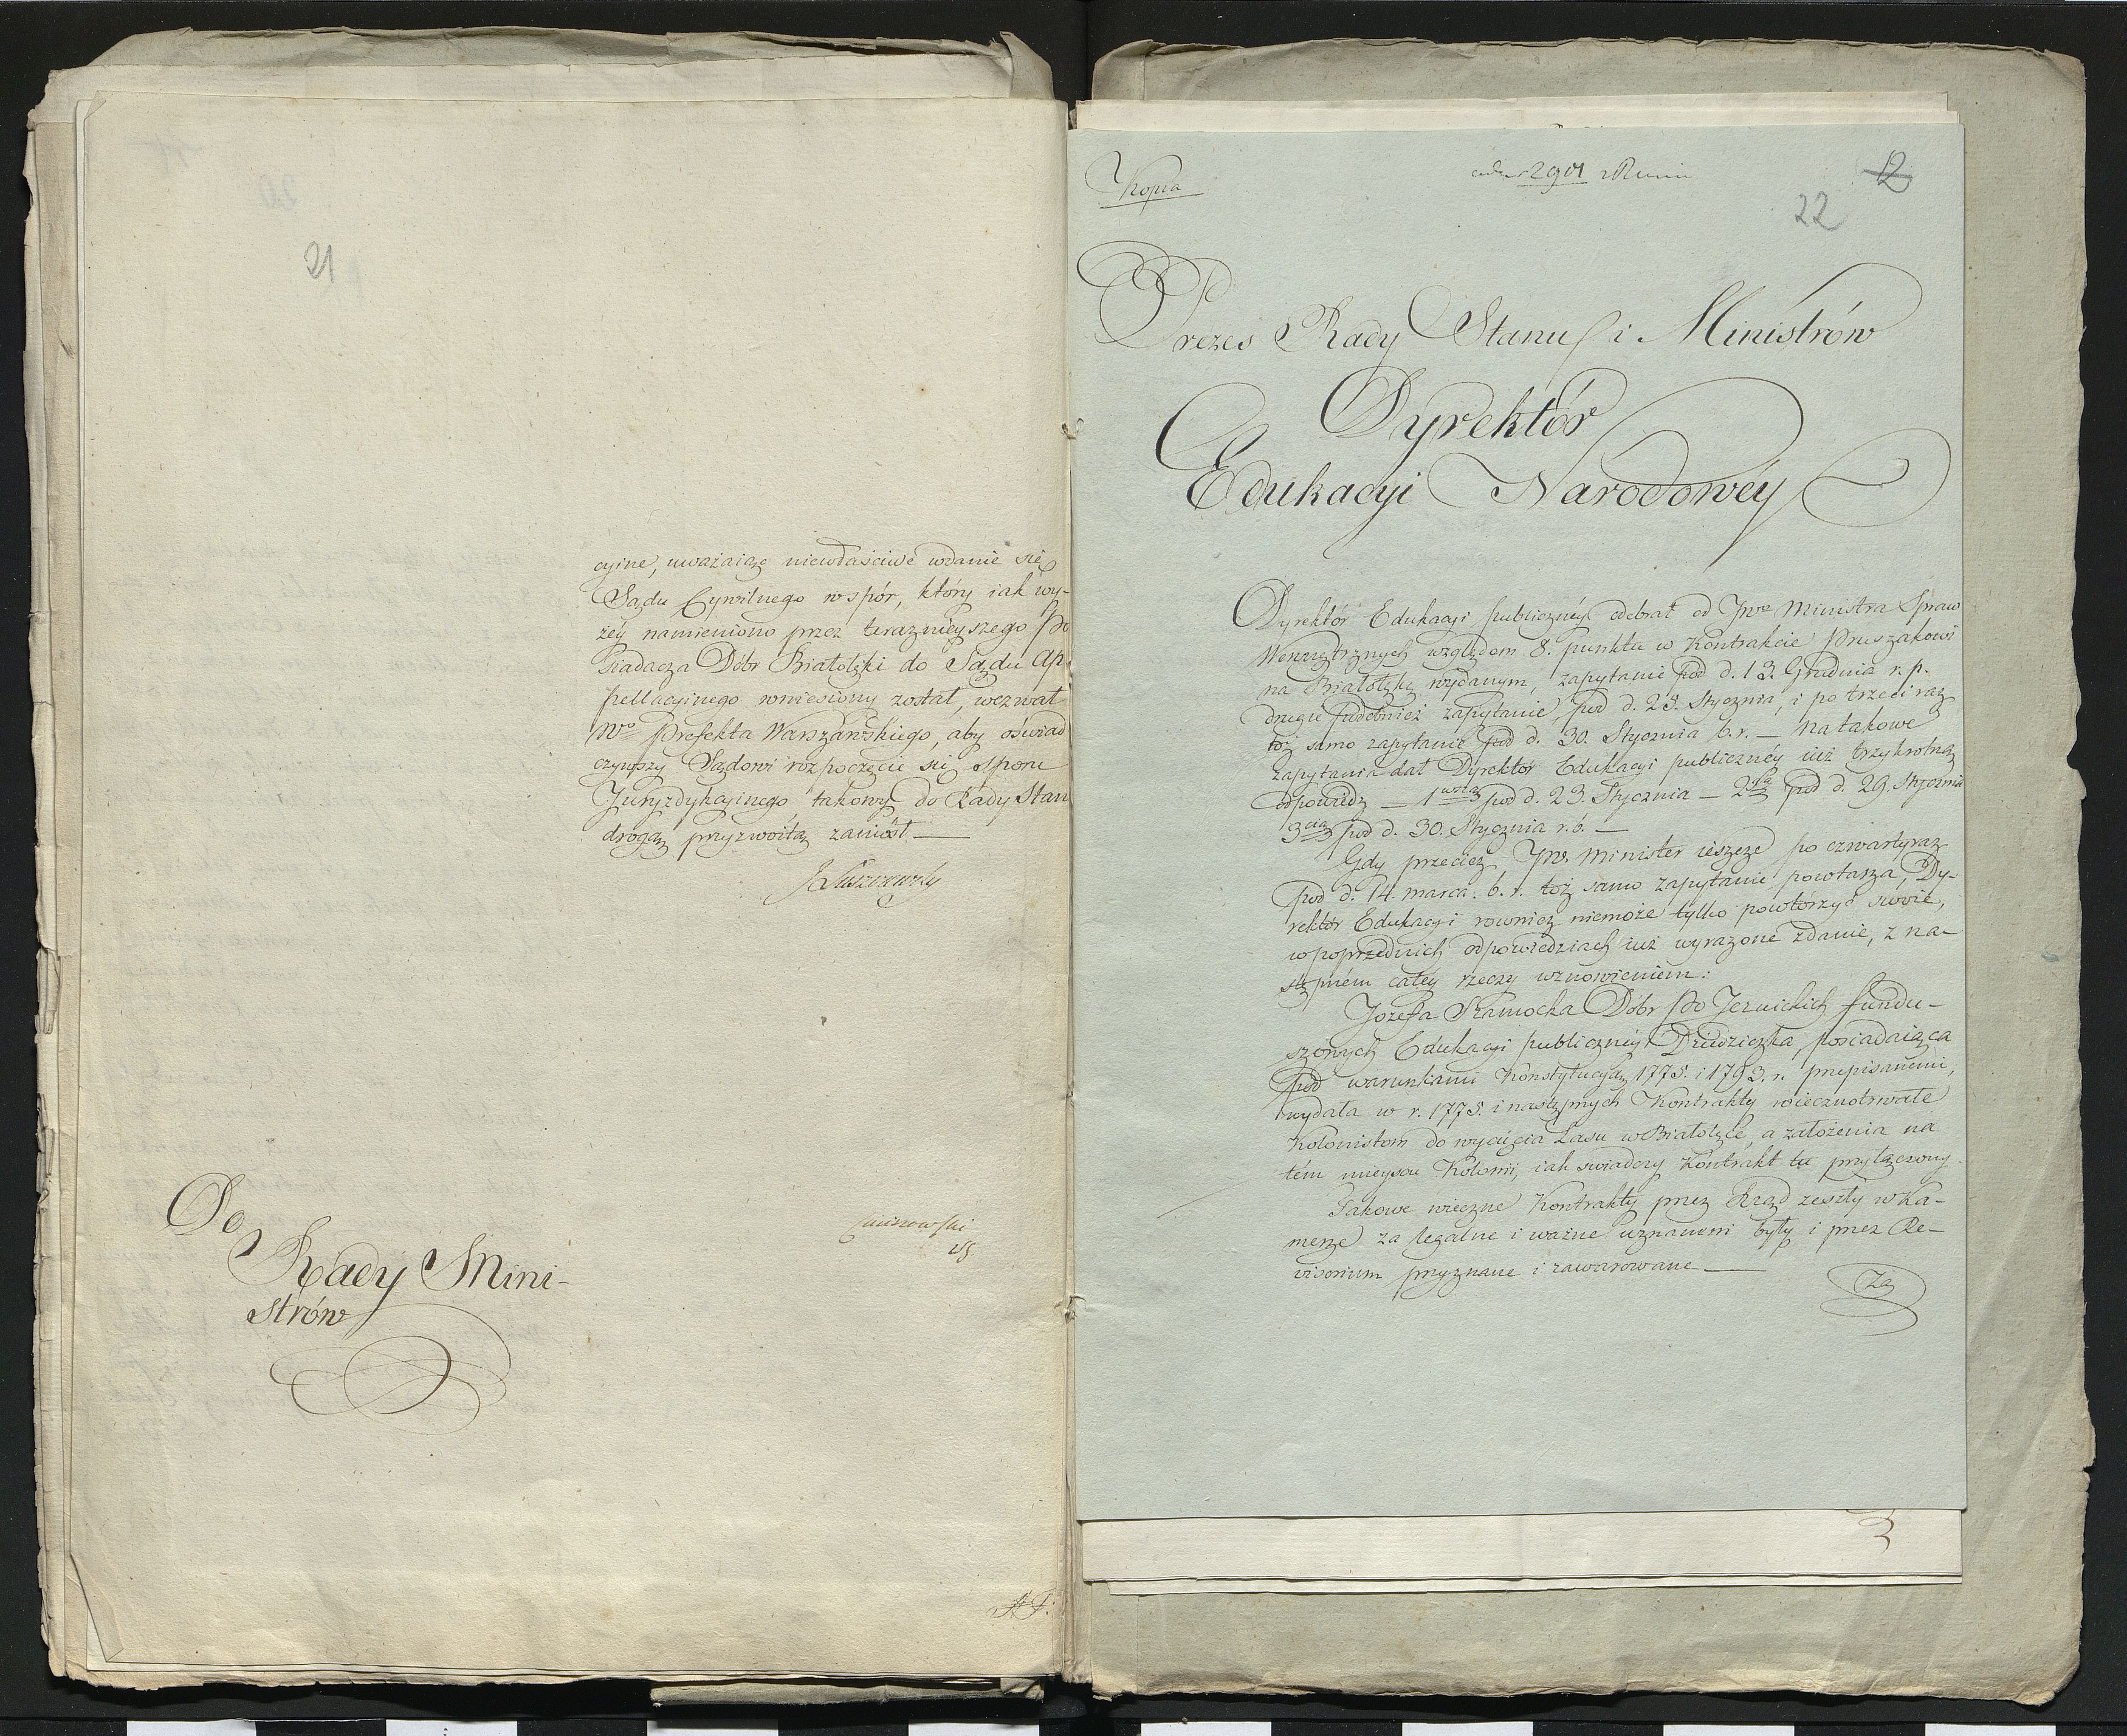 21
cyine, uważaiąc niewłaściwe wdanie się
Sądu Cywilnego w spór, który iak wy-
żéy namieniono przez teraznieyszego po
siadacza Dóbr Białołęki do Sądu Ap-
pellacyinego wniesiony został, wezwał
Wo Prefekta Warszawskiego, aby oświad
czywszy Sądowi rozpoczęcie się sporu
Juryzdykcyinego takowy do Rady Stan
drogą przyzwoitą zaniósł —
JŁuszczewsky
Do
Rady Mini-
strów
Kopia
2901
12
22
Prezes Rady Stanu i Ministrów
Dyrektór
Edukacyi Narodowéy
Dyrektór Edukacyi publicznéy odebrał od JWo Ministra Spraw
Wewnętrznych względem 8. punktu w Kontrakcie Pruszakowi
na Białołękę wydanym, zapytanie pod d. 13. Grudnia r. p.
drugie podobnież zapytanie, pod d. 23. Stycznia, i po trzeci raz
toż samo zapytanie pod d. 30. Stycznia b. r. — na takowe
zapytania dał Dyrektór Edukacyi publicznéy iuż trzykrotną
odpowiedz — 1wszą pod d. 23. Stycznia — 2gą pod d. 29. Stycznia
3cią pod d. 30. Stycznia r. b. —
Gdy przecież JW. Minister ieszcze po czwarty raz
pod d. 14. marca. b. r. toż samo zapytanie powtarza, Dy-
rektór Edukacyi rownież niemoże tylko powtórzyć swoie,
w poprzednich odpowiedziach iuż wyrażone zdanie, z na-
stępném całéy rzeczy wznowieniem:
Jozefa Szamocka Dóbr po Jezuickich fundu-
szowych Edukacyi publicznéy Dziedziczka, posiadaiąca
pod warunkami Konstytucyą 1775. i 1793. r. przepisanemi,
wydała w r. 1775. i następnych Kontrakty wiecznotrwałe
Kolonistom do wycięcia Lasu w Białołęce, a założenia na
tém mieyscu Kolonii, iak swiadczy Kontrakt tu przyłączony.
Takowe wieczne Kontrakty przez Rząd zeszły w Ka-
merze za legalne i ważne uznanemi były i przez Re-
visorium przyznane i zawarowane —
Za